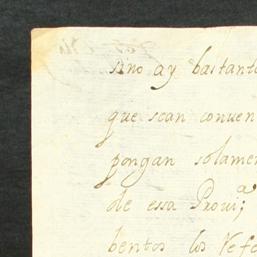 sino ay bastant
que sean conuen
pongan solamen
de essa Prouiᵃ;
bentos los Refe